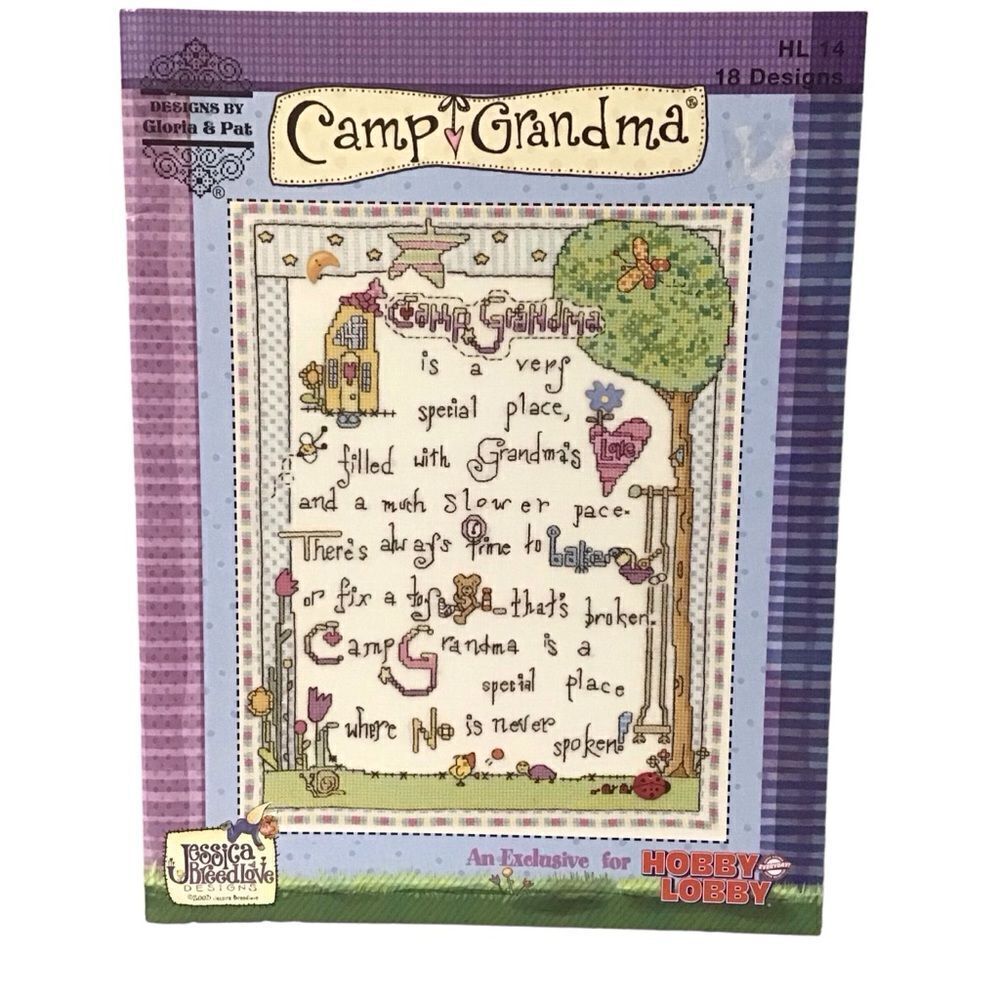 HL 14
18 Designs
DESIGNS BY
Gloria & Pat
®
Camp Grandma®
Camp Grandma
is a very
special place,
Love
filled with Grandma's
and a much slower pace.
There's always time to bake
or fix a toy that's broken.
Camp Grandma is a
special place
where No is never
spoken!
Jessica
BreedLove
DESIGNS
©2005 Jessica Breedlove
An Exclusive for HOBBY
LOBBY